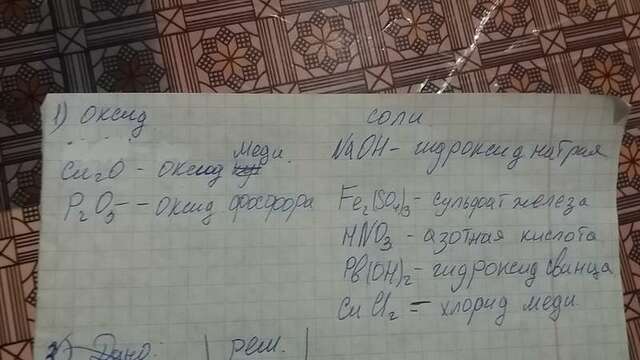 1) оксид
Cu₂O - оксид меди.
P₂O₅ - - оксид фосфора
соли
NaOH - гидроксид натрия
Fe₂(SO₄)₃ - сульфат железа
HNO₃ - азотная кислота
Pb(OH)₂ - гидроксид свинца
CuCl₂ = хлорид меди
2) Дано: | реш. |